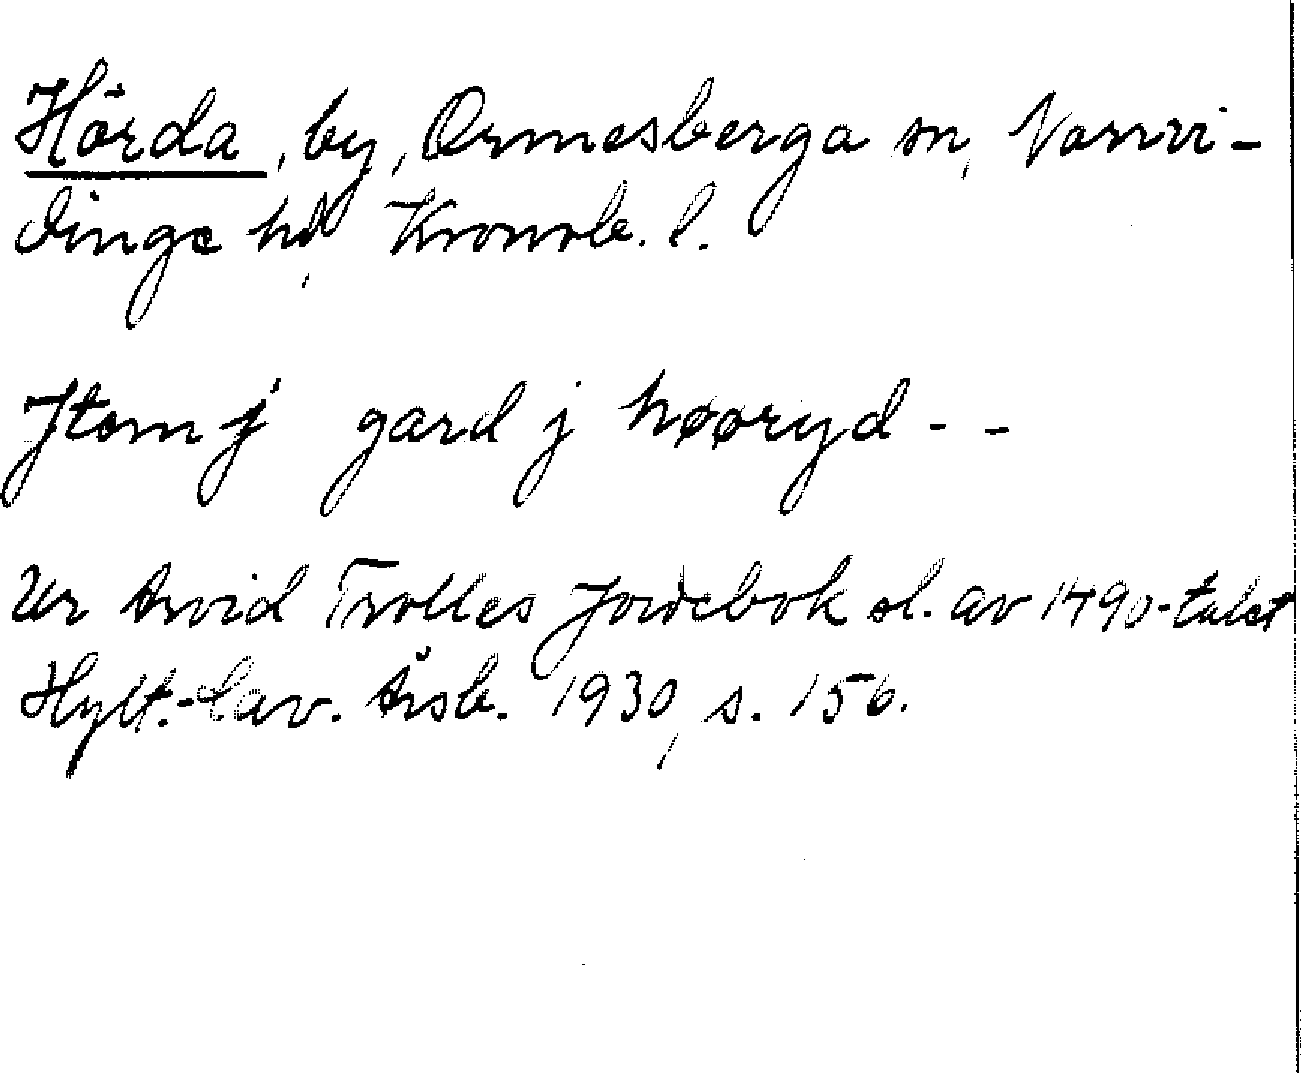 Hörda, by, Ormesberga sn, Norrvi-
dinge hd, Kronob. l.
Jtem j gard j høøryd - -
Ur Arvid Trolles Jordebok sl. av 1490-talet
Hylt.-Cav. Årsb. 1930, s. 156.